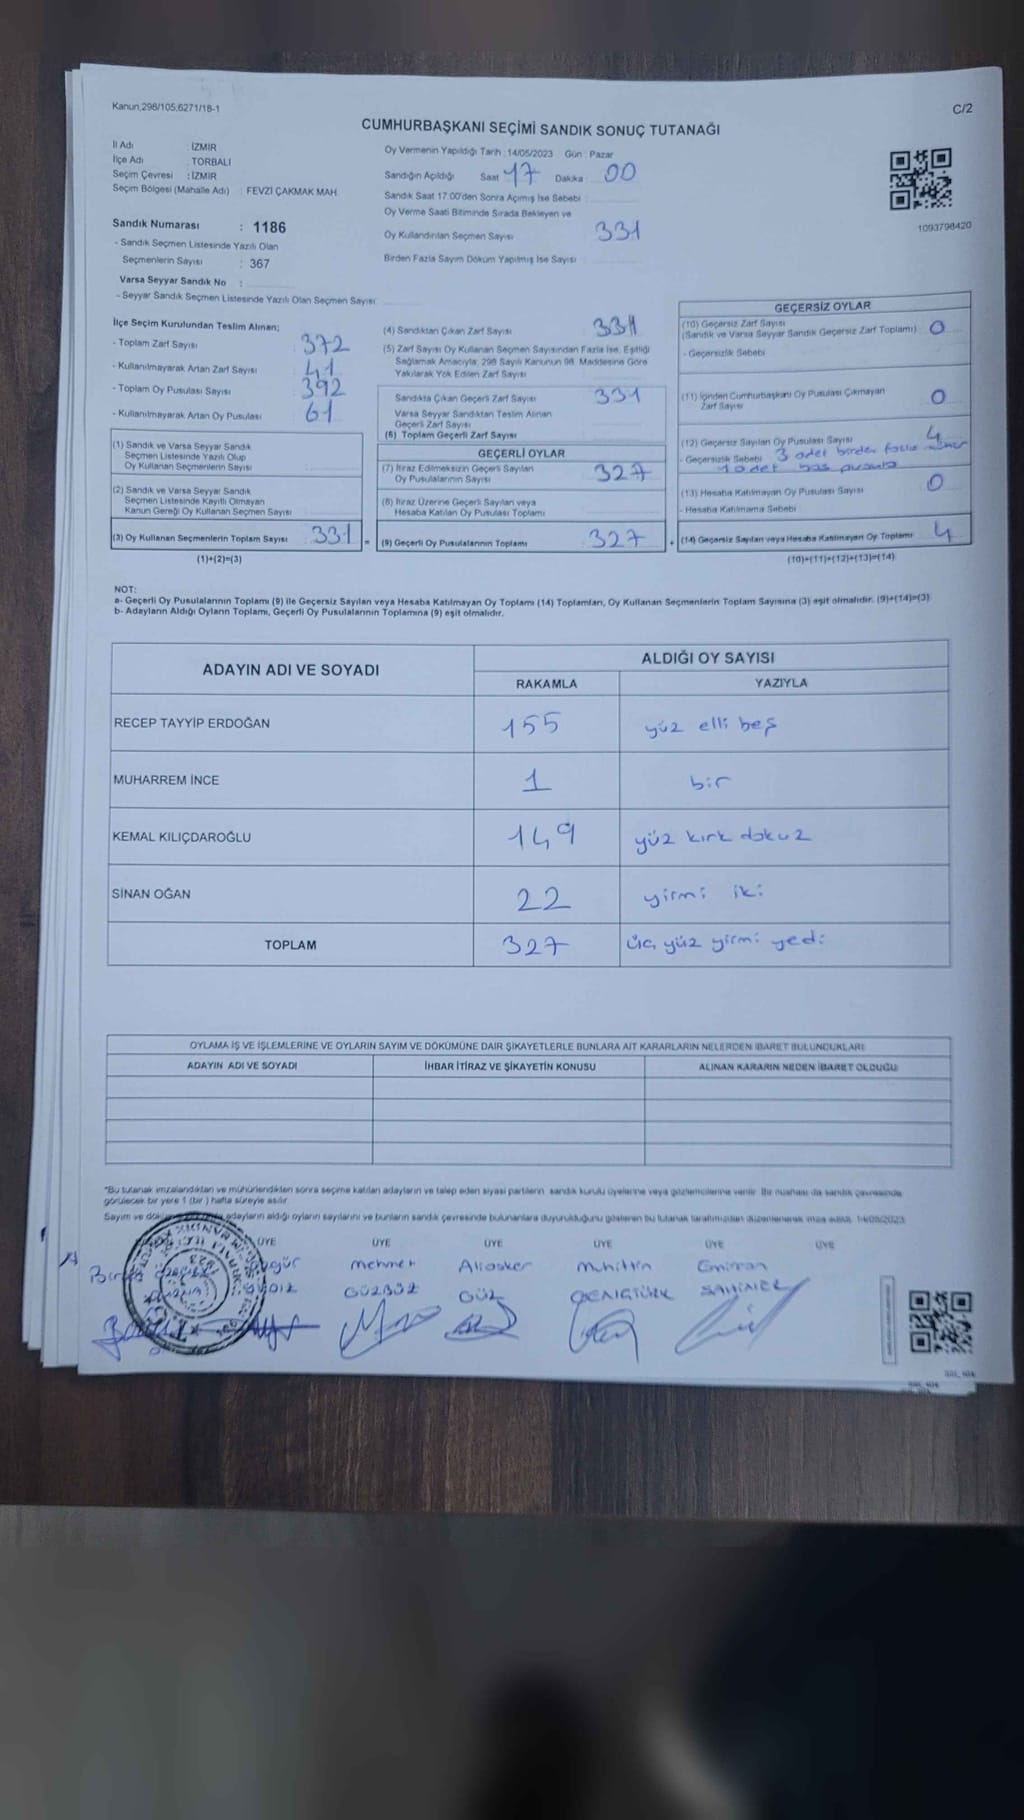 Kanun,298/105,6271/18-1
C/2
CUMHURBAŞKANI SEÇİMİ SANDIK SONUÇ TUTANAĞI
İl Adı : İZMİR
İlçe Adı : TORBALI
Seçim Çevresi : İZMİR
Seçim Bölgesi (Mahalle Adı) : FEVZİ ÇAKMAK MAH
Oy Vermenin Yapıldığı Tarih :14/05/2023 Gün : Pazar
Sandığın Açıldığı Saat 17 Dakika 00
Sandık Saat 17:00'den Sonra Açımış İse Sebebi :
Oy Verme Saati Bitiminde Sırada Bekleyen ve
Oy Kullandırılan Seçmen Sayısı 331
Birden Fazla Sayım Döküm Yapılmış İse Sayısı :
1093798420
Sandık Numarası : 1186
- Sandık Seçmen Listesinde Yazılı Olan
Seçmenlerin Sayısı : 367
Varsa Seyyar Sandık No :
- Seyyar Sandık Seçmen Listesinde Yazılı Olan Seçmen Sayısı
İlçe Seçim Kurulundan Teslim Alınan;
- Toplam Zarf Sayısı 372
- Kullanılmayarak Artan Zarf Sayısı 41
- Toplam Oy Pusulası Sayısı 392
- Kullanılmayarak Artan Oy Pusulası 61
(1) Sandık ve Varsa Seyyar Sandık
Seçmen Listesinde Yazılı Olup
Oy Kullanan Seçmenlerin Sayısı
(2) Sandık ve Varsa Seyyar Sandık
Seçmen Listesinde Kayıtlı Olmayan
Kanun Gereği Oy Kullanan Seçmen Sayısı
(3) Oy Kullanan Seçmenlerin Toplam Sayısı 331 =
(1)+(2)=(3)
(4) Sandıktan Çıkan Zarf Sayısı 331
(5) Zarf Sayısı Oy Kullanan Seçmen Sayısından Fazla İse, Eşitliği
Sağlamak Amacıyla, 298 Sayılı Kanunun 98. Maddesine Göre
Yakılarak Yok Edilen Zarf Sayısı
Sandıkta Çıkan Geçerli Zarf Sayısı 331
Varsa Seyyar Sandıktan Teslim Alınan
Geçerli Zarf Sayısı
(6) Toplam Geçerli Zarf Sayısı
GEÇERLİ OYLAR
(7) İtiraz Edilmeksizin Geçerli Sayılan
Oy Pusulalarının Sayısı 327
(8) İtiraz Üzerine Geçerli Sayılan veya
Hesaba Katılan Oy Pusulası Toplamı
(9) Geçerli Oy Pusulalarının Toplamı 327 +
GEÇERSİZ OYLAR
(10) Geçersiz Zarf Sayısı
(Sandık ve Varsa Seyyar Sandık Geçersiz Zarf Toplamı) 0
- Geçersizlik Sebebi
(11) İçinden Cumhurbaşkanı Oy Pusulası Çıkmayan
Zarf Sayısı 0
(12) Geçersiz Sayılan Oy Pusulası Sayısı 4
- Geçersizlik Sebebi 3 adet birden fazla mühür
1 adet boş pusula
(13) Hesaba Katılmayan Oy Pusulası Sayısı 0
- Hesaba Katılmama Sebebi
(14) Geçersiz Sayılan veya Hesaba Katılmayan Oy Toplamı 4
(10)+(11)+(12)+(13)=(14)
NOT:
a- Geçerli Oy Pusulalarının Toplamı (9) ile Geçersiz Sayılan veya Hesaba Katılmayan Oy Toplamı (14) Toplamları, Oy Kullanan Seçmenlerin Toplam Sayısına (3) eşit olmalıdır. (9)+(14)=(3)
b- Adayların Aldığı Oyların Toplamı, Geçerli Oy Pusulalarının Toplamına (9) eşit olmalıdır.
ADAYIN ADI VE SOYADI
ALDIĞI OY SAYISI
RAKAMLA YAZIYLA
RECEP TAYYİP ERDOĞAN 155 yüz elli beş
MUHARREM İNCE 1 bir
KEMAL KILIÇDAROĞLU 149 yüz kırk dokuz
SİNAN OĞAN 22 yirmi iki
TOPLAM 327 üç yüz yirmi yedi
OYLAMA İŞ VE İŞLEMLERİNE VE OYLARIN SAYIM VE DÖKÜMÜNE DAİR ŞİKAYETLERLE BUNLARA AİT KARARLARIN NELERDEN İBARET BULUNDUKLARI
ADAYIN ADI VE SOYADI İHBAR İTİRAZ VE ŞİKAYETİN KONUSU ALINAN KARARIN NEDEN İBARET OLDUĞU
*Bu tutanak imzalandıktan ve mühürlendikten sonra seçime katılan adayların ve talep eden siyasi partilerin sandık kurulu üyelerine veya gözlemcilerine verilir. Bir nüshası da sandık çevresinde
görülecek bir yere 1 (bir ) hafta süreyle asılır.
Sayım ve adayların aldığı oyların sayılarını ve bunların sandık çevresinde bulunanlara duyurulduğunu gösteren bu tutanak tarafımızdan düzenlenerek imza edildi. 14/05/2023
ÜYE ÜYE ÜYE ÜYE ÜYE ÜYE
Mehmet Aliasker Muhittin Emirhan
GÜRBÜZ GÜL